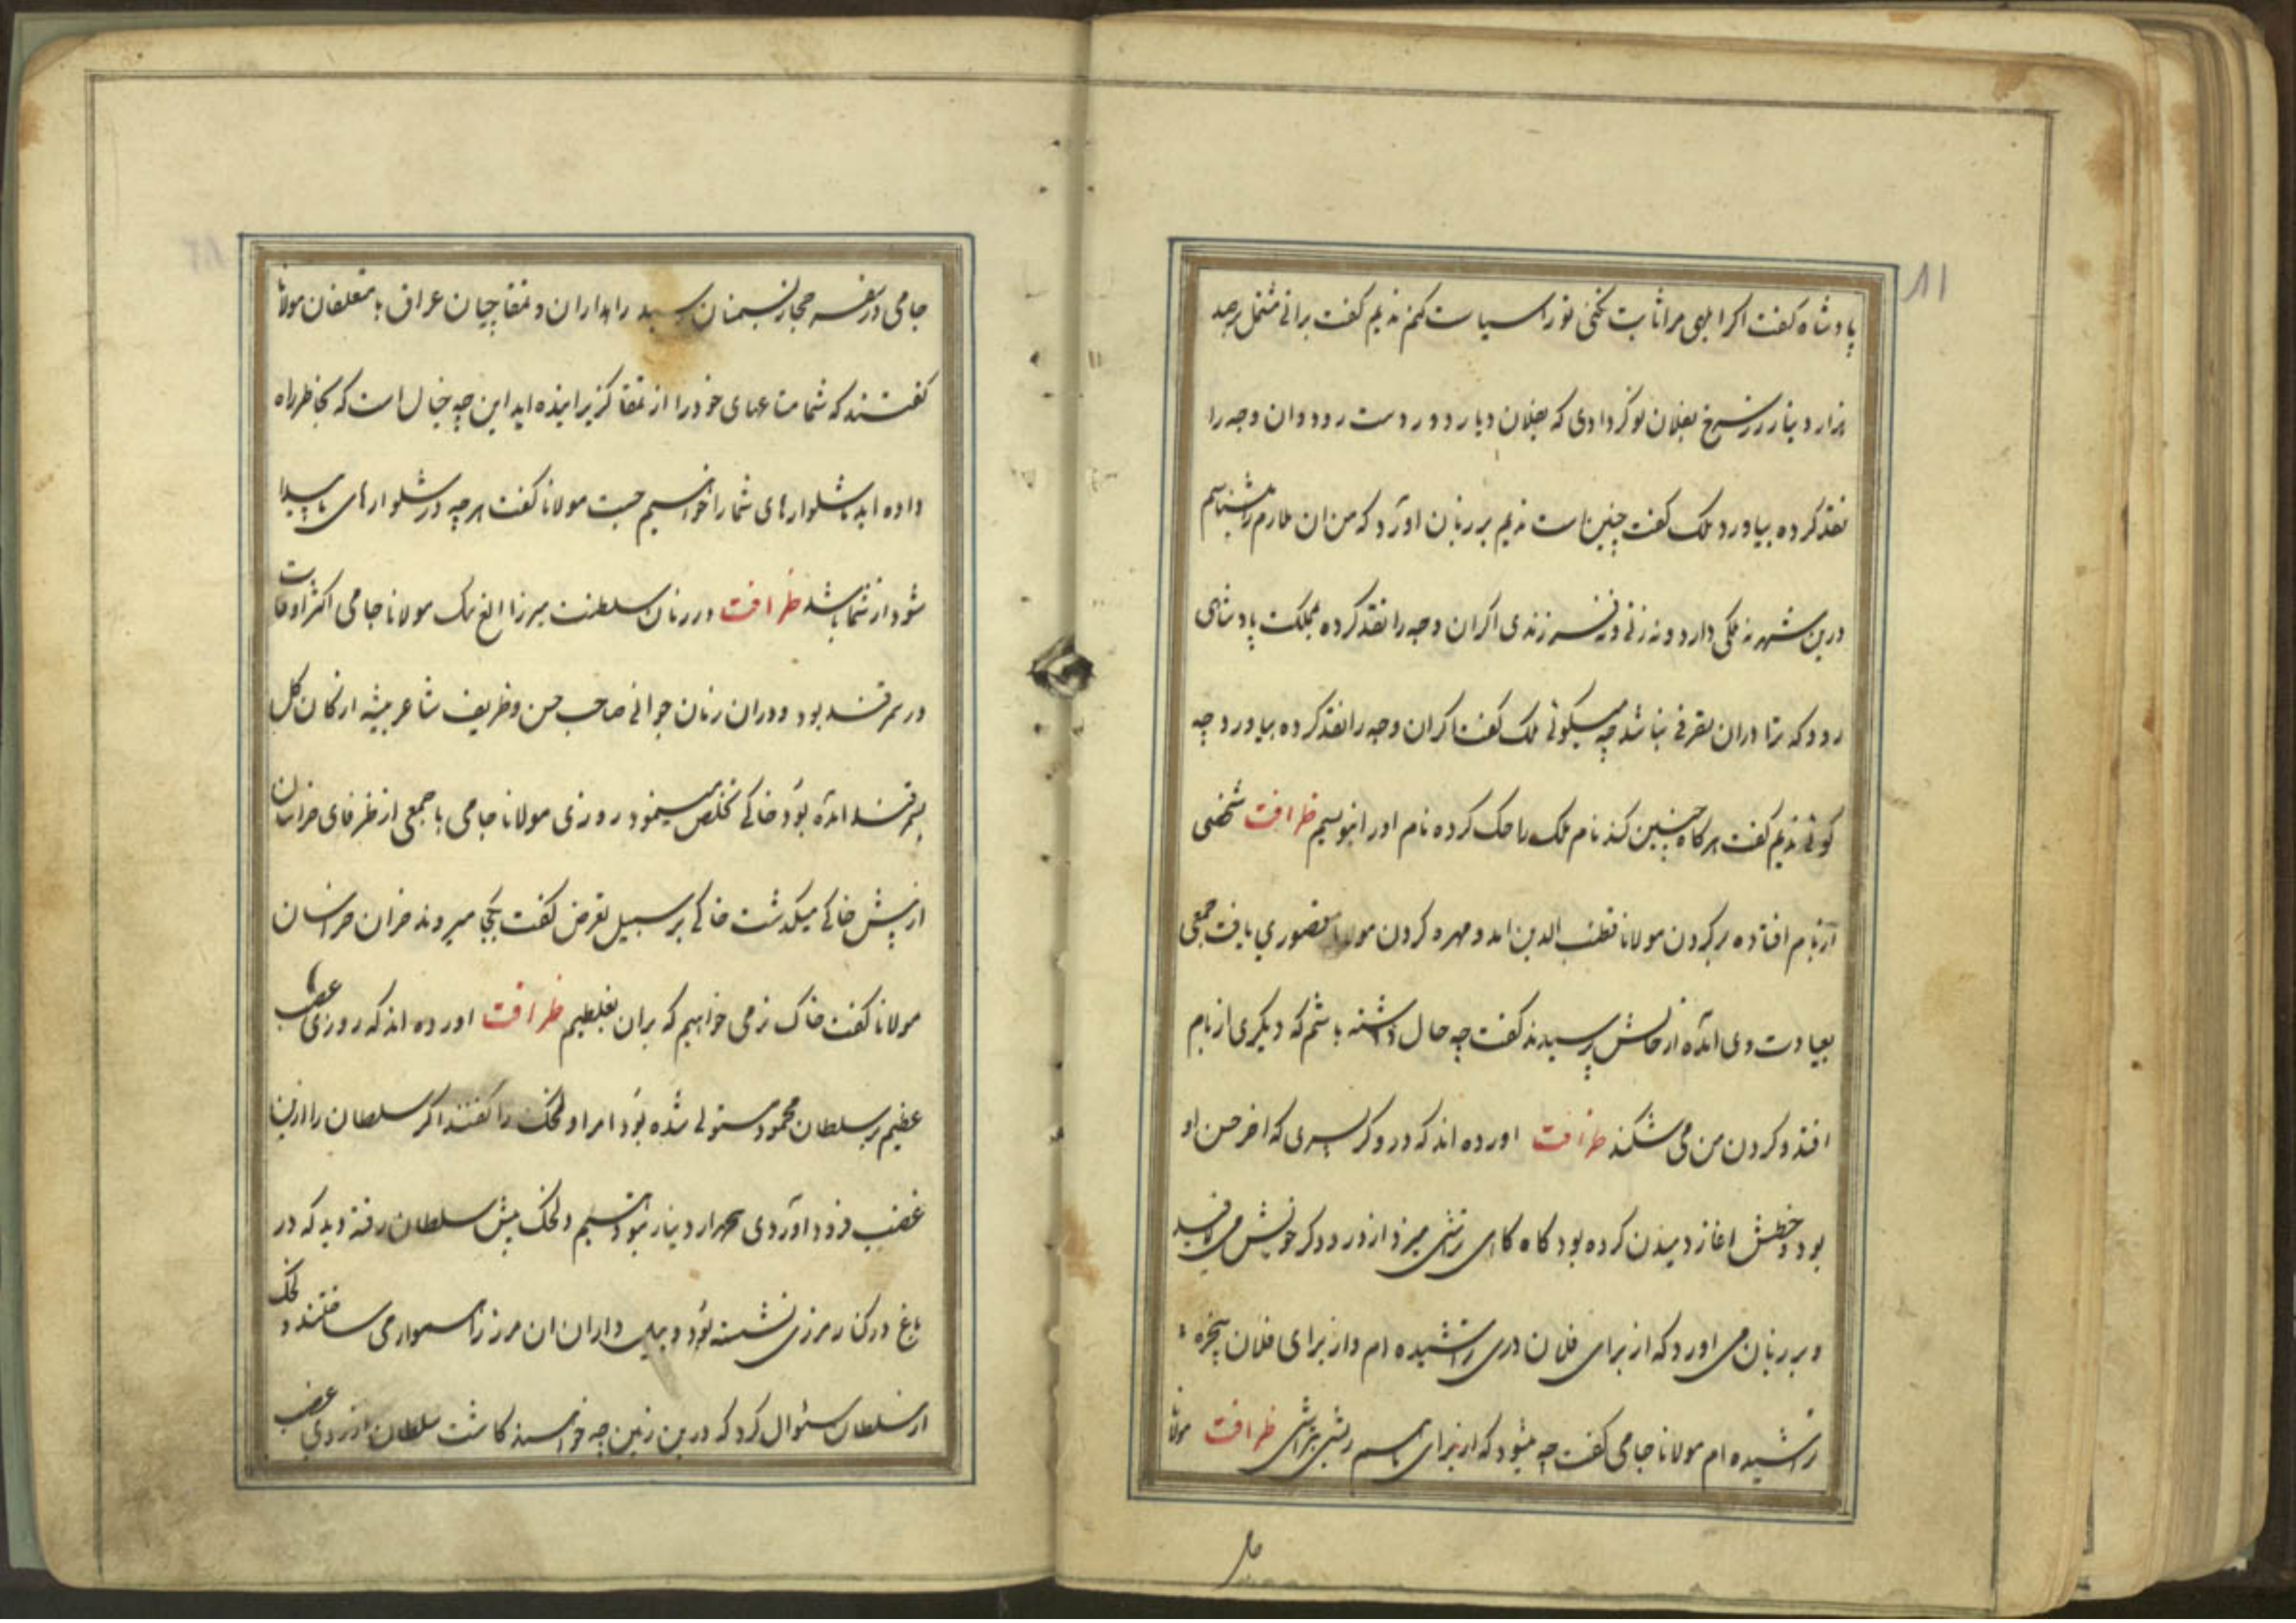 ۸۱
پادشاه کفت اکر ابلهی مرا ثابت نکنی تو را سیاست کنم ندیم کفت براتی مشتمل بر صد
هزار دینار زر سرخ بفلان نوکر دادی که بفلان دیار دور دست رود و ان وجه را
نقد کرده بیاورد ملک کفت چنین است ندیم بر زبان اورد که من ان ملازم را میشناسم
درین شهر نه ملکی دارد و نه زنی و نه فرزندی اکر ان وجه را نقد کرده بمملکت پادشاهی
رود که ترا دران تصرفی نباشد چه میکوئی ملک کفت اکر ان وجه را نقد کرده بیاورد چه
کوئی ندیم کفت هر کاه چنین کند نام ملک را حک کرده نام او را بنویسم ظرافت شخصی
از بام افتاده بر کردن مولانا قطب الدین امد و مهره کردن مولانا قصوری یافت جمعی
بعیادت وی امده از حالش پرسیدند کفت چه حال داشته باشم که دیکری از بام
افتد و کردن من می شکند ظرافت اورده اند که درودکر پسری که اخر حسن او
بود و خطش اغاز دمیدن کرده بود کاه کاهی تراشی میزد از درودکری خویش می لافید
و بر زبان می اورد که از برای فلان دری تراشیده ام و از برای فلان پنجره
تراشیده ام مولانا جامی کفت چه میشود که از برای ما هم ریشی بتراشی ظرافت مولانا
جامی در سفر حجاز بسمنان رسید راهداران و تمغاچیان عراق با متعلقان مولانا
کفتند که شما متاعهای خود را از تمغا کریزانیده اید این چه خیال است که بخاطر راه
داده اید ما شلوارهای شما را خواهیم جست مولانا کفت هر چه در شلوارهای ما پیدا
شود از شما باشد ظرافت در زمان سلطنت میرزا الغ بک مولانا جامی اکثر اوقات
در سمرقند بود و دران زمان جوانی صاحب حسن و ظریف شاعر پیشه از کان کل
بسمرقند امده بود خاکی تخلص مینمود روزی مولانا جامی با جمعی از ظرفای خراسان
از پیش خاکی میکذشت خاکی بر سبیل تعرض کفت بکجا میروند خران خراسان
مولانا کفت خاک نرمی خواهیم که بران بغلطیم ظرافت اورده اند که روزی غضب
عظیم بر سلطان محمود مستولی شده بود امرا دلخک را کفتند اکر سلطان را ازین
غضب فرود اوردی هزار دینار بتو دهیم دلخک پیش سلطان رفته دید که در
باغ در کنار مرزی نشسته بود و بیل داران ان مرز را هموار می ساختند دلخک
از سلطان سئوال کرد که درین زمین چه خواهند کاشت سلطان از روی غضب